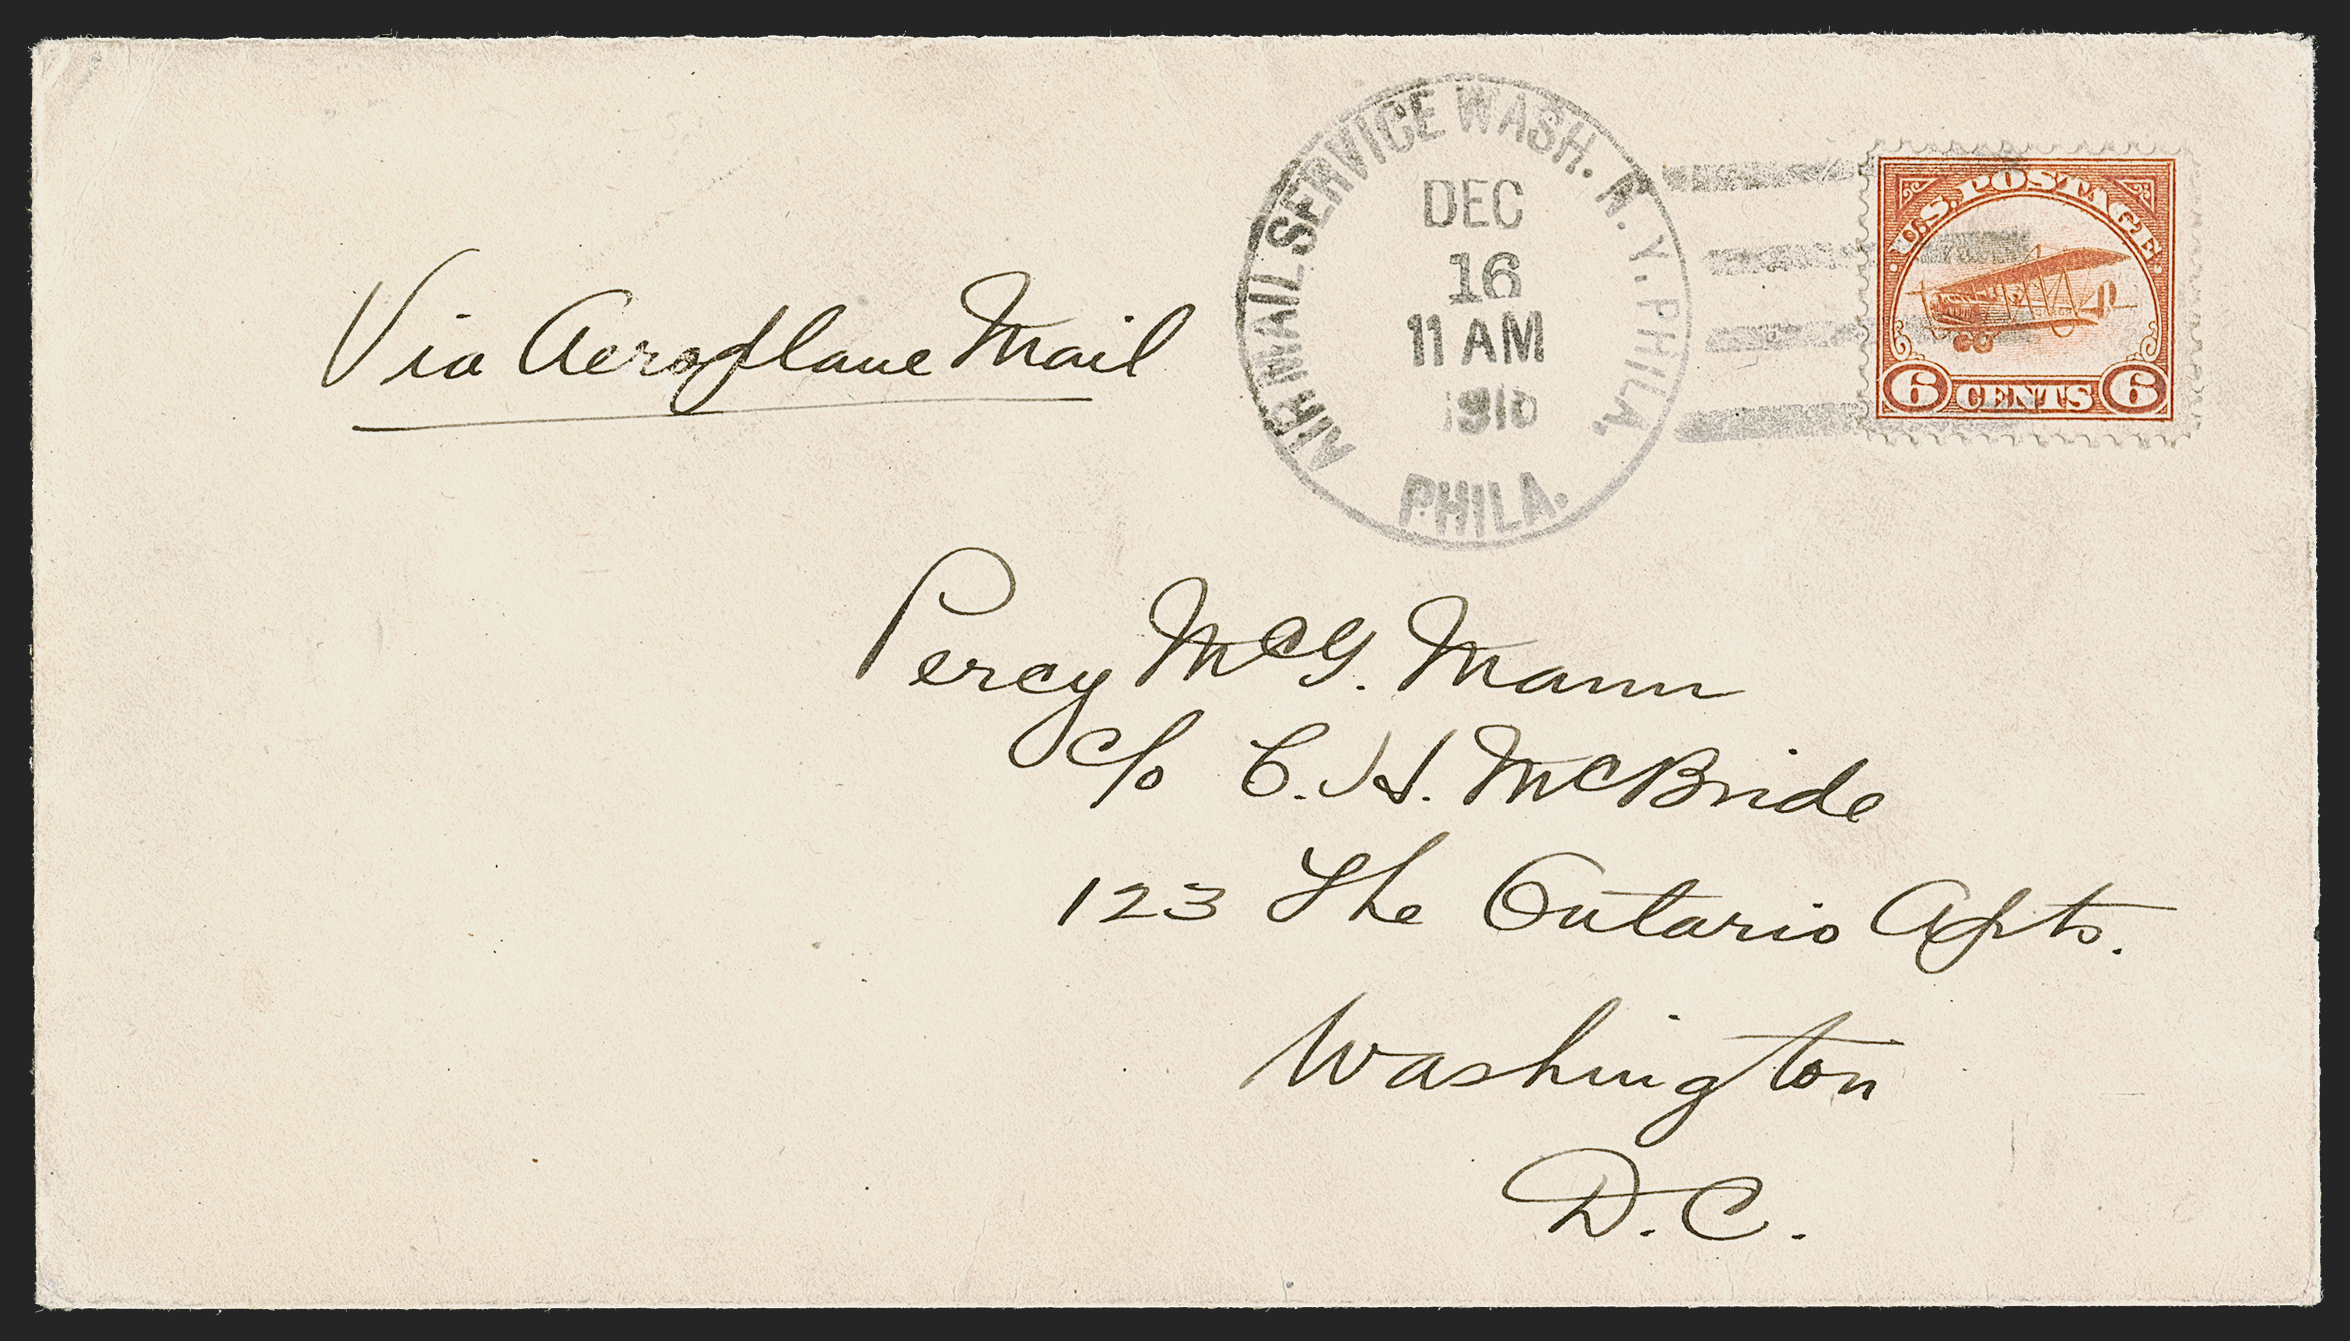 Via Aeroplane Mail
AIR MAIL SERVICE WASH. N.Y. PHILA.
DEC
16
11 AM
1918
PHILA.
U.S. POSTAGE
6 CENTS 6
Percy McG. Mann
c/o C. H. McBride
123 The Ontario Apts.
Washington
D.C.